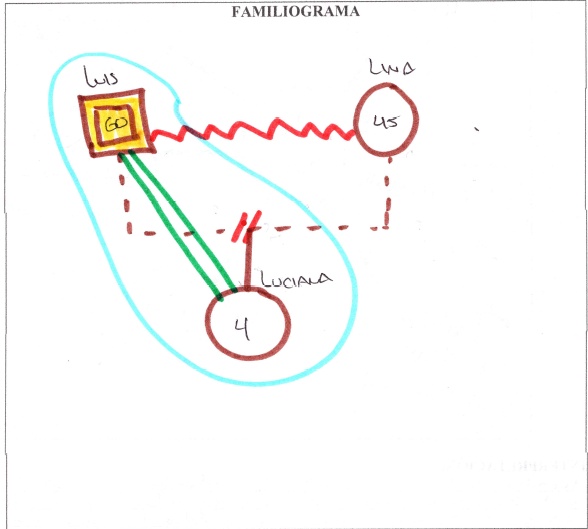 FAMILIOGRAMA
LUIS
LINA
60
45
LUCIANA
4